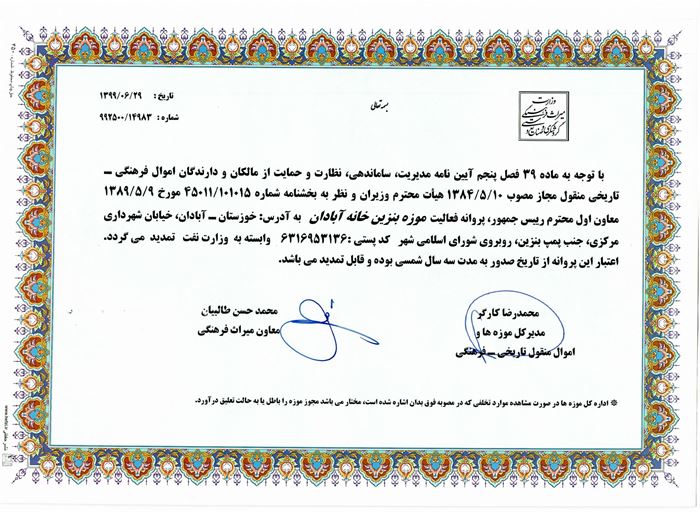 بسمه تعالی
تاریخ : ۱۳۹۹/۰۶/۲۹
شماره : ۹۹۲۵۰۰/۱۴۹۸۳
وزارت
میراث فرهنگی
گردشگری و صنایع دستی
با توجه به ماده ۳۹ فصل پنجم آیین نامه مدیریت، ساماندهی، نظارت و حمایت از مالکان و دارندگان اموال فرهنگی ــ
تاریخی منقول مجاز مصوب ۱۳۸۴/۵/۱۰ هیأت محترم وزیران و نظر به بخشنامه شماره ۴۵۰۱۱/۱۰۱۰۱۵ مورخ ۱۳۸۹/۵/۹
معاون اول محترم رییس جمهور، پروانه فعالیت موزه بنزین خانه آبادان به آدرس: خوزستان ــ آبادان، خیابان شهرداری
مرکزی، جنب پمپ بنزین، روبروی شورای اسلامی شهر کد پستی :۶۳۱۶۹۵۳۱۳۶ وابسته به وزارت نفت تمدید می گردد.
اعتبار این پروانه از تاریخ صدور به مدت سه سال شمسی بوده و قابل تمدید می باشد.
محمدرضا کارگر
مدیرکل موزه ها و
اموال منقول تاریخی ــ فرهنگی
محمد حسن طالبیان
معاون میراث فرهنگی
※ اداره کل موزه ها در صورت مشاهده موارد تخلفی که در مصوبه فوق بدان اشاره شده است، مختار می باشد مجوز موزه را باطل یا به حالت تعلیق درآورد.